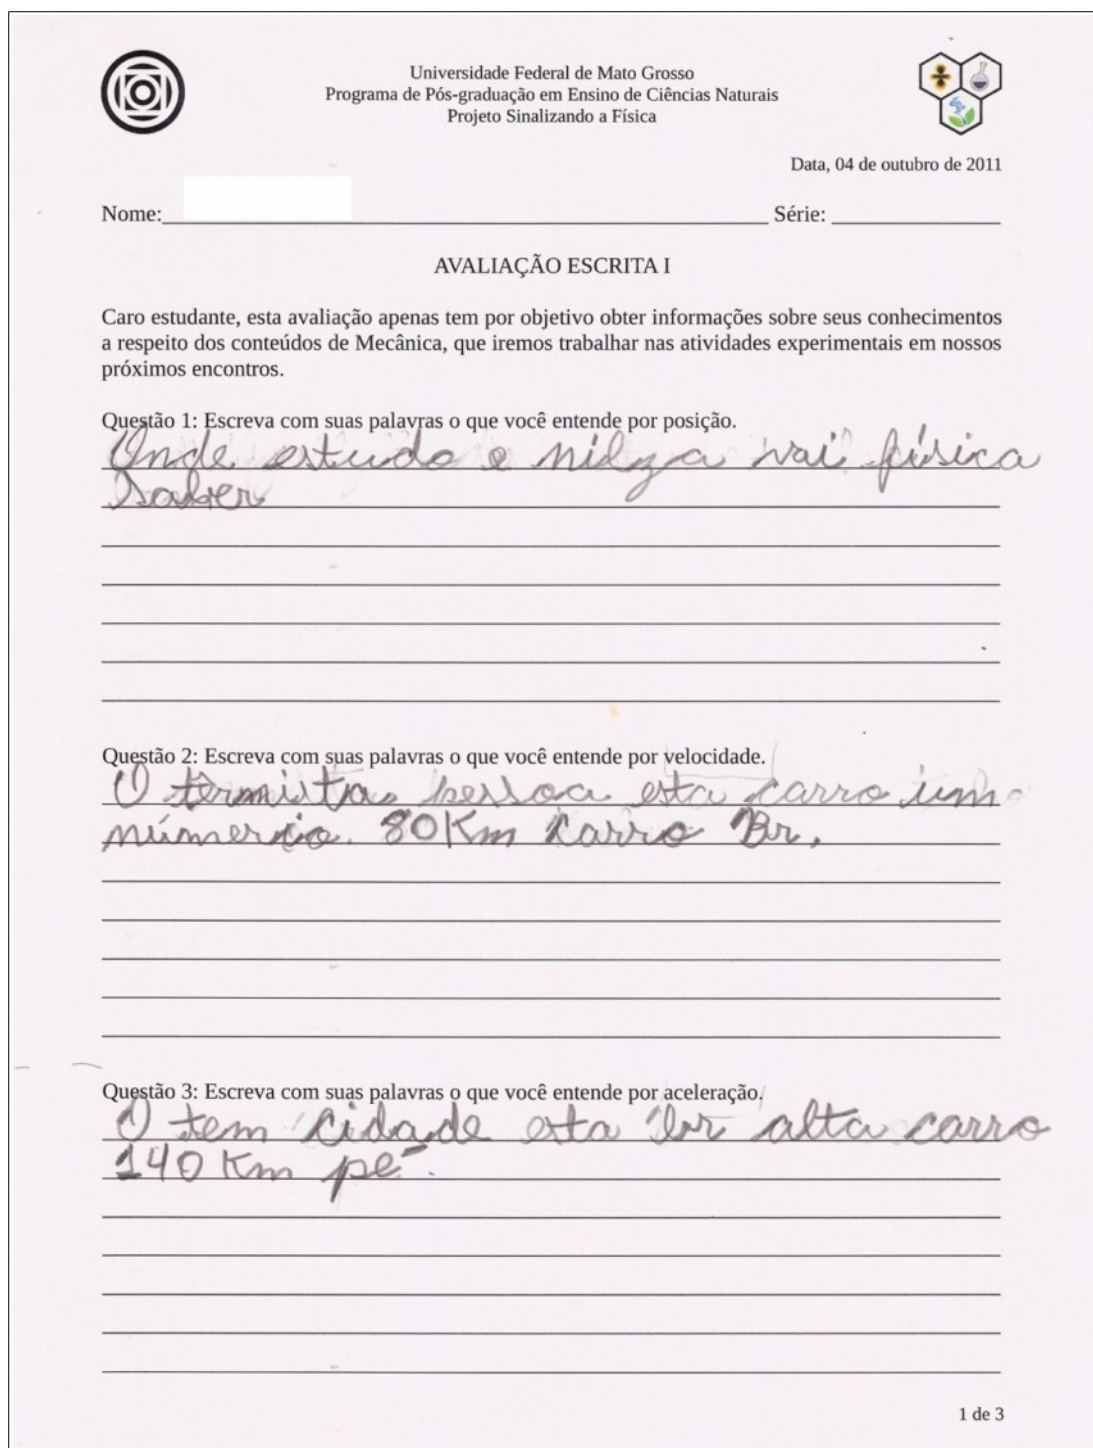 Universidade Federal de Mato Grosso
Programa de Pós-graduação em Ensino de Ciências Naturais
Projeto Sinalizando a Física
Data, 04 de outubro de 2011
Nome: Série:
AVALIAÇÃO ESCRITA I
Caro estudante, esta avaliação apenas tem por objetivo obter informações sobre seus conhecimentos
a respeito dos conteúdos de Mecânica, que iremos trabalhar nas atividades experimentais em nossos
próximos encontros.
Questão 1: Escreva com suas palavras o que você entende por posição.
Onde estuda e nilza vai física
saber
Questão 2: Escreva com suas palavras o que você entende por velocidade.
O pessoa esta carro um
número 80Km carro Br.
Questão 3: Escreva com suas palavras o que você entende por aceleração.
O tem cidade esta alta carro
140 Km pé.
1 de 3